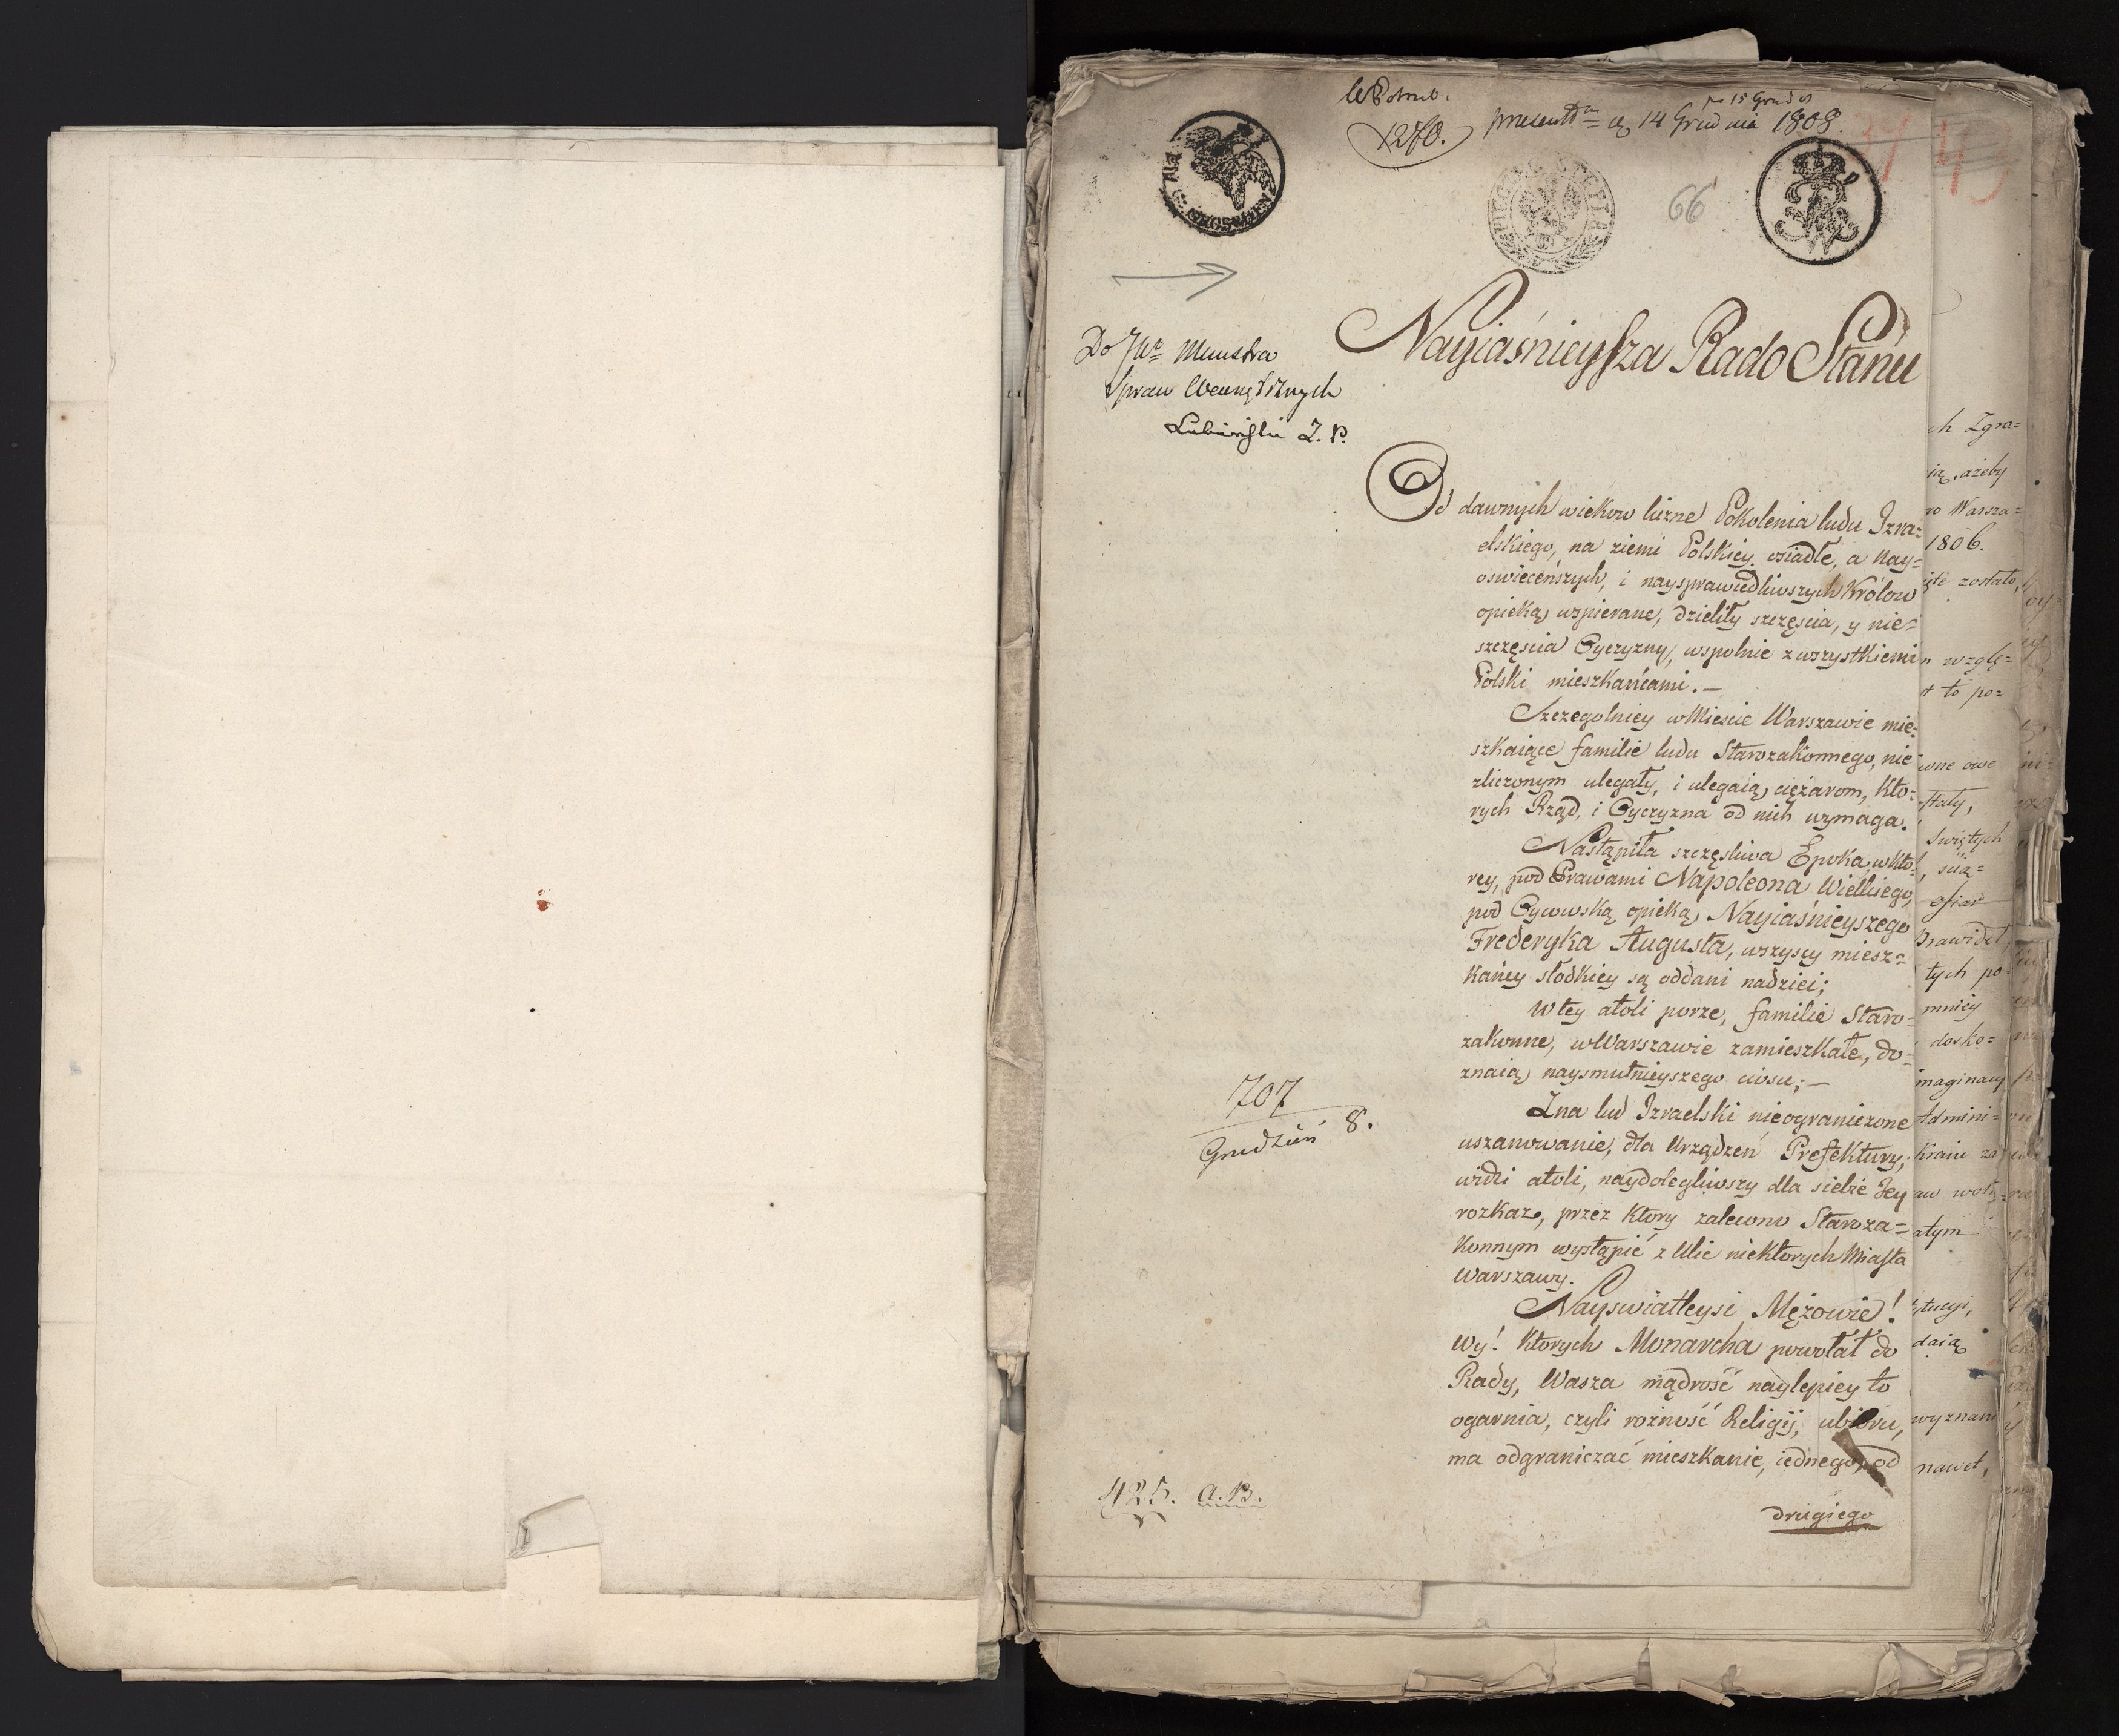 1270.
presentm d 14 Grudnia 1808.
15 Grud
66
GROSCHEN
Do JW Ministra
Spraw Wewnętrznych
Nayiaśnieysza Rado Stanu
Od dawnych wiekow liczne Pokolenia ludu Izra=
elskiego, na ziemi Polskiey osiadłe, a nay=
oswieceńszych, i nayprawiedliwszych Królow
opieką wspierane, dzieliły szczęscia, y nie=
szczęscia Oyczyzny, wspolnie z wszystkiemi
Polski mieszkańcami. —
Szczegolniey w Miescie Warszawie mie=
szkaiące familie ludu Starozakonnego, nie
zliczonym ulegały, i ulegaią ciężarom, kto=
rych Rząd, i Oyczyzna od nich wymaga.
Nastąpiła szczęsliwa Epoka w kto=
rey, pod Prawami Napoleona Wielkiego,
pod Oycowską opieką Nayiaśnieyszego
Frederyka Augusta, wszyscy miesz=
kańcy słodkiey są oddani nadziei;
W tey atoli porze, familie Staro=
zakonne, w Warszawie zamieszkałe, do=
znaią naysmutnieyszego ciosu; —
Zna lud Izraelski nieograniczone
uszanowanie, dla Urządzeń Prefektury,
widzi atoli, naydolegliwszy dla siebie Jey
rozkaz, przez ktory zalecono Staroza=
konnym wystąpić z Ulic niektorych Miasta
Warszawy.
Nayswiatleysi Mężowie!
Wy! ktorych Monarcha powołał do
Rady, Wasza mądrość naylepiey to
ogarnia, czyli rożność Religij, ubioru,
ma odgraniczać mieszkanie, iednego, od
drugiego
707
Grudzień 8.
425. a. B.
ch Zgra=
ią, ażeby
go Warsza=
1806.
zostało,
wzglę=
to po=
owe
stały,
Swiętych
ofiar
prawideł,
tych po
mniey
dosko=
imaginacy
Admini=
Kraiu za
atym
daią
wyznani
nawet,